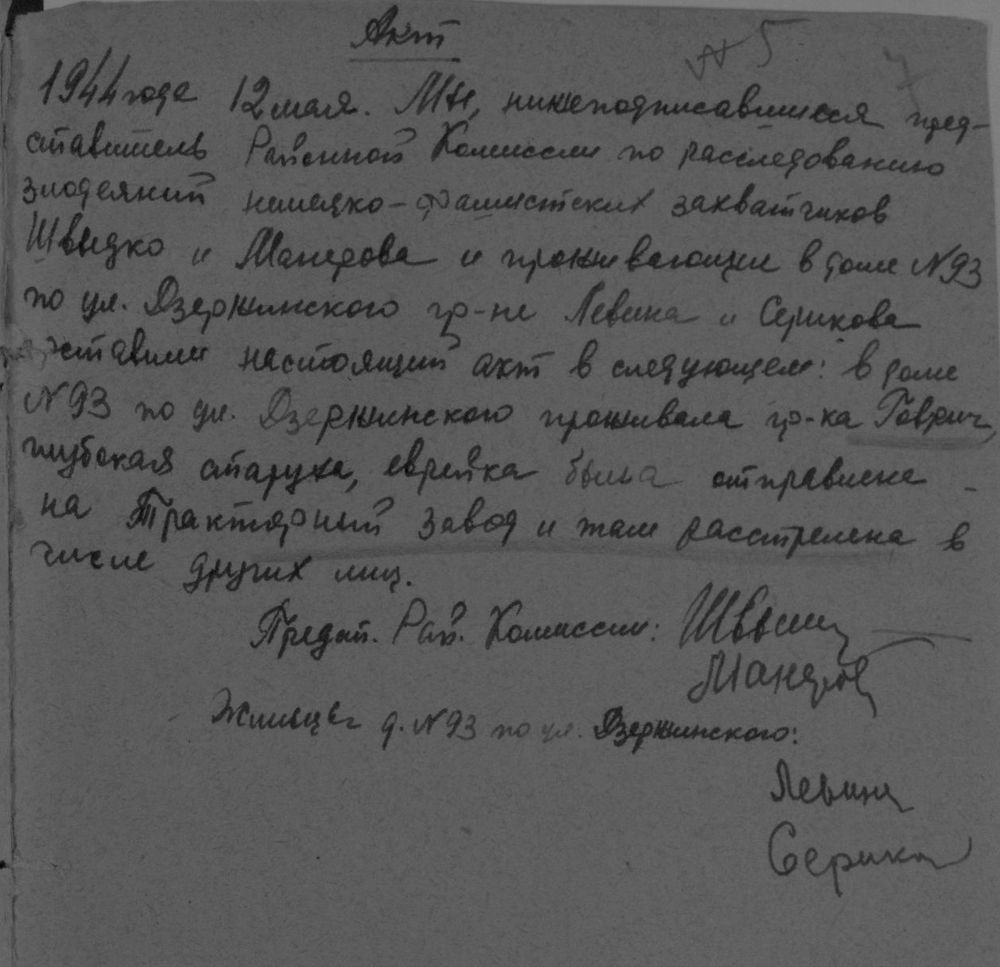 Акт
№ 5
1944 года 12 мая. Мы, нижеподписавшиеся пред-
ставитель Районной Комиссии по расследованию
злодеяний немецко-фашистских захватчиков
Швыдко и и проживающие в доме №93
по ул. Дзержинского гр-не Левина и Серикова
составили настоящий акт в следующем: в доме
№93 по ул. Дзержинского проживала гр-ка Гаврич,
глубокая старуха, еврейка была отправлена
на Тракторный завод и там расстреляна в
числе других лиц.
Предст. Рай. Комиссии:
Жильцы д. №93 по ул. Дзержинского:
Левина
Серико